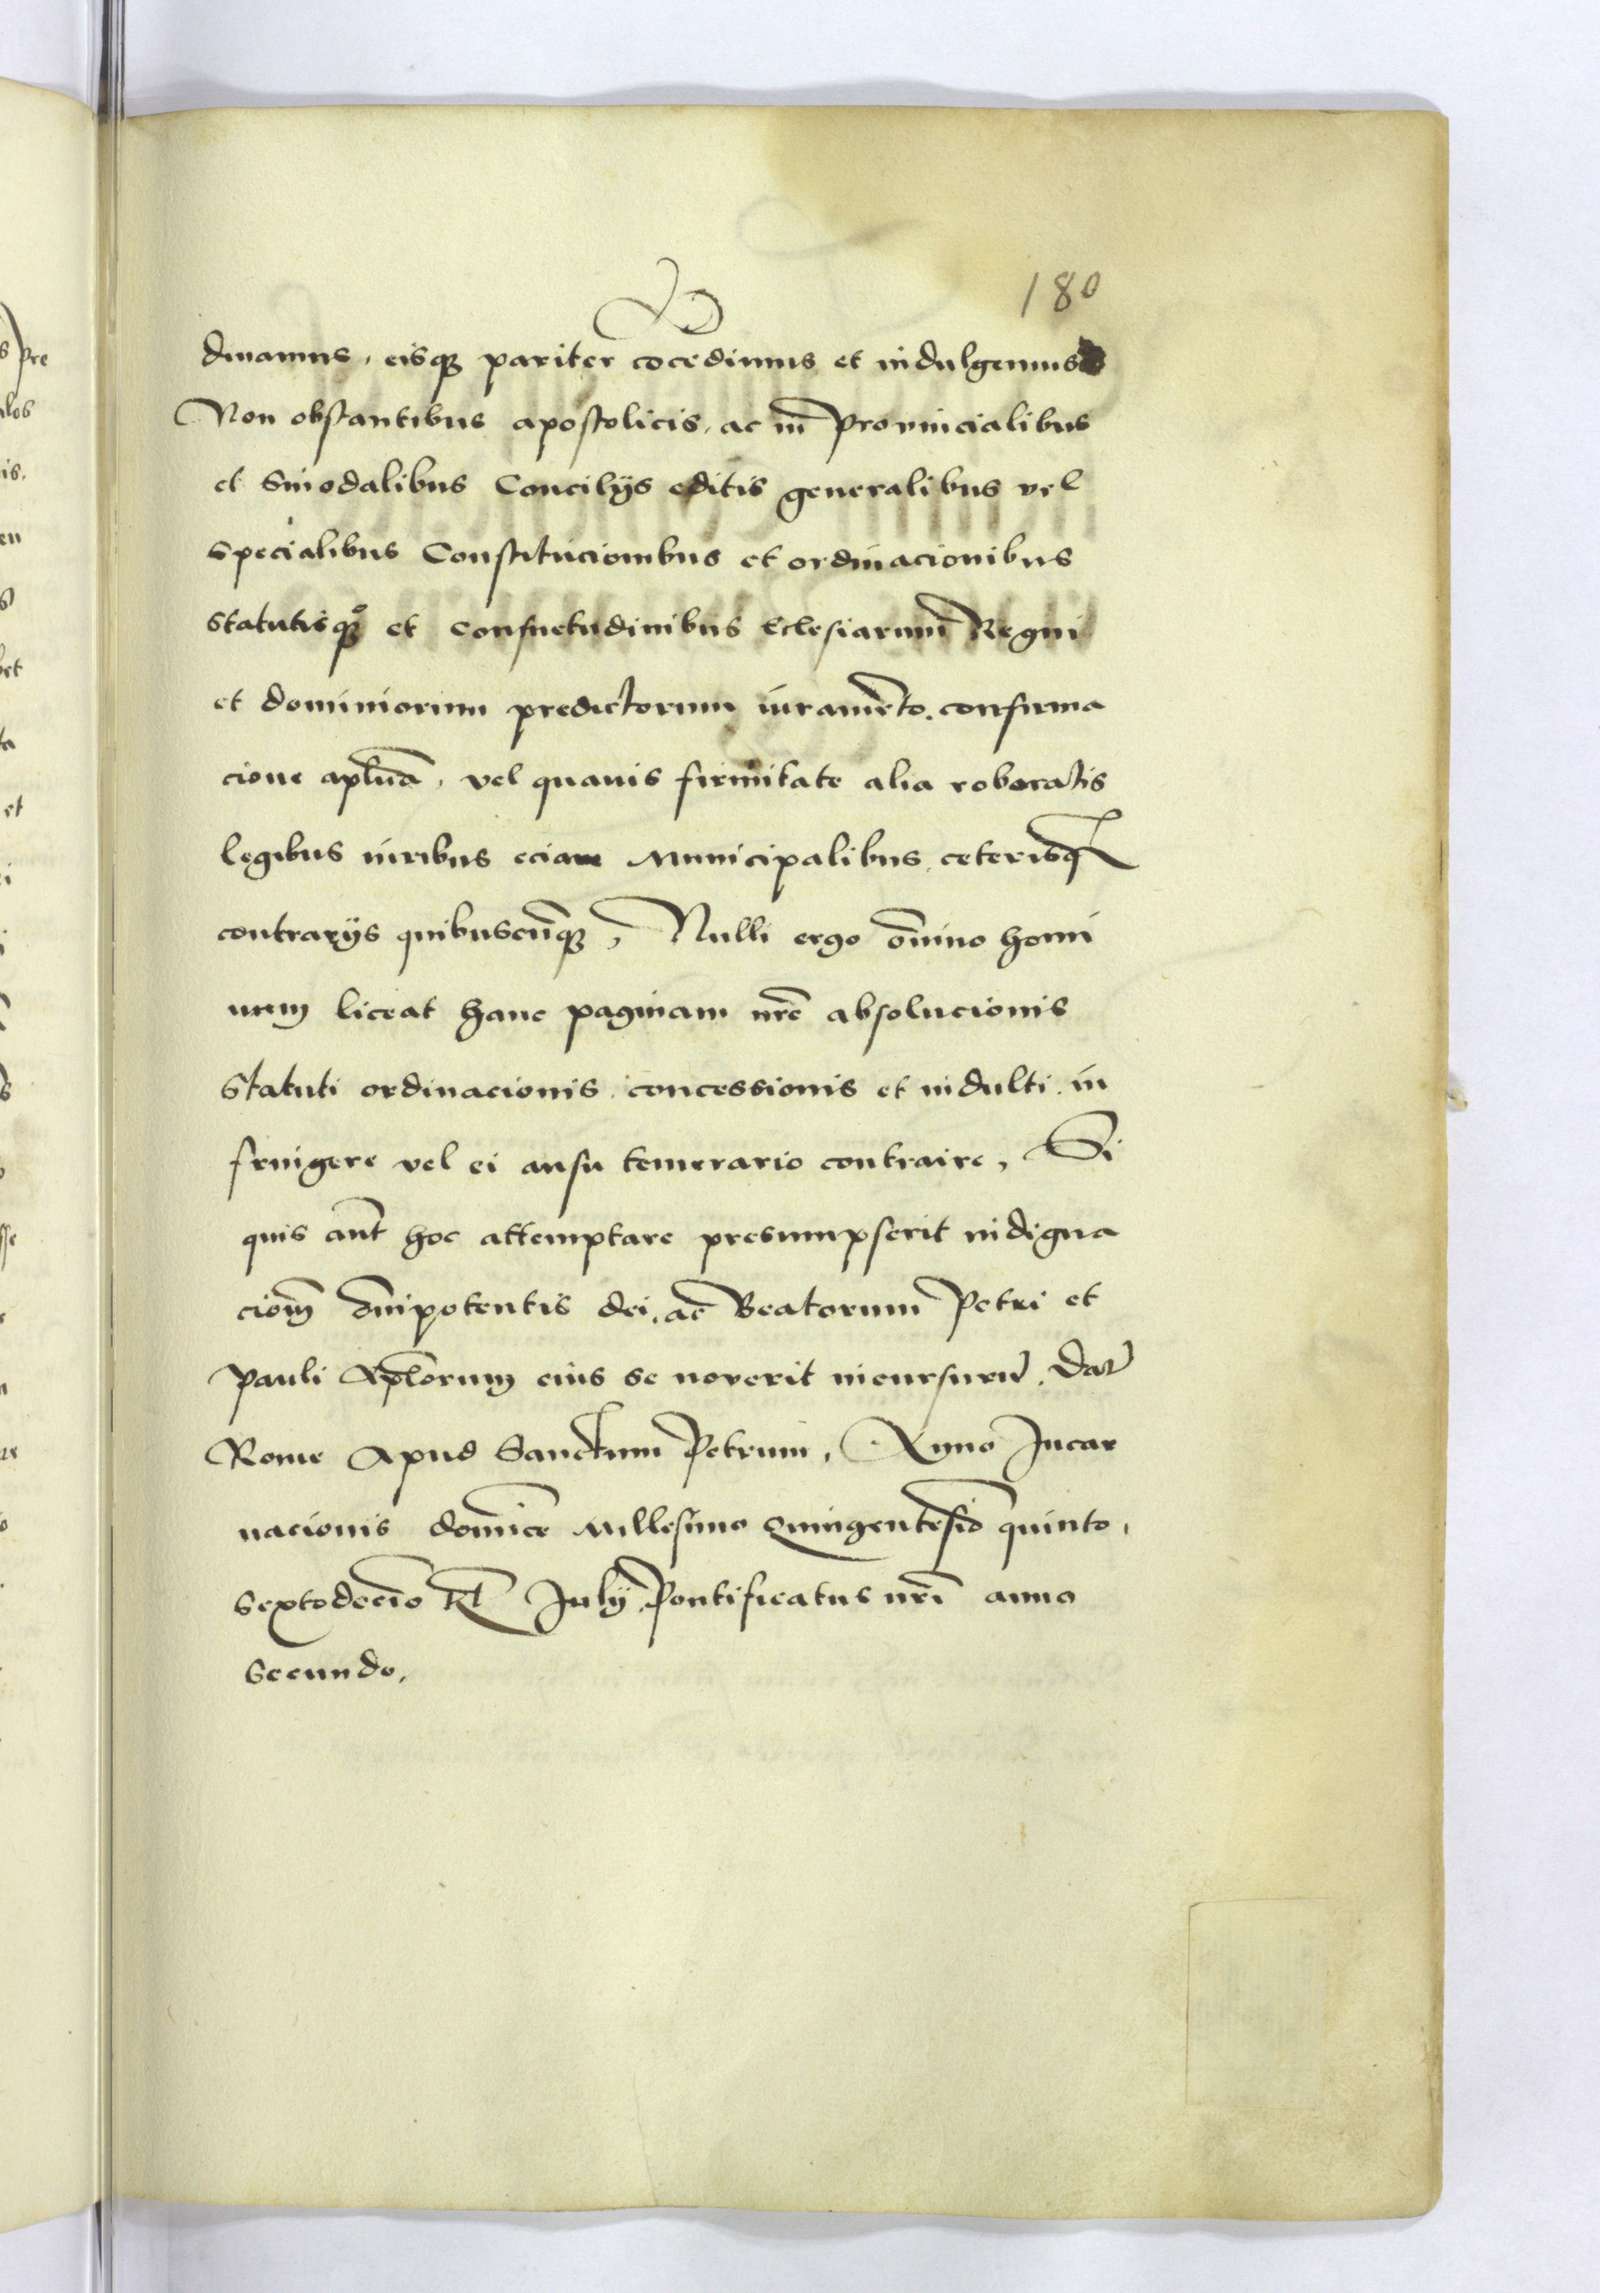 180
dinamus, eisq; pariter cōcedimus et indulgemus
Non obstantibus apostolicis, ac in Provincialibus
et Sinodalibus Concilijs editis generalibus vel
Specialibus Constitucionibus et ordinacionibus
statutisq; et consuetudinibus Eclesiarum Regni
et dominiorum predictorum iuramēto, confirma
cione aplica, vel quavis firmitate alia roboratis
legibus iuribus eciam Municipalibus, ceterisq;
contrarijs quibuscūq;, Nulli ergo ōnino homi
num liceat hanc paginam nrē absolucionis
Statuti ordinacionis, concessionis et indulti, in
fringere vel ei ausu temerario contraire, Si
quis aūt hoc attemptare presumpserit indigna
cionē ōnipotentis dei, ac Beatorum Petri et
Pauli Aplorum eius se noverit incursurū, Dat
Rome Apud Sanctum Petrum, Anno Incar
nacionis dominice Millesimo Quingentesīo quinto,
Sextodecīo Kl July Pontificatus nrī anno
Secundo,